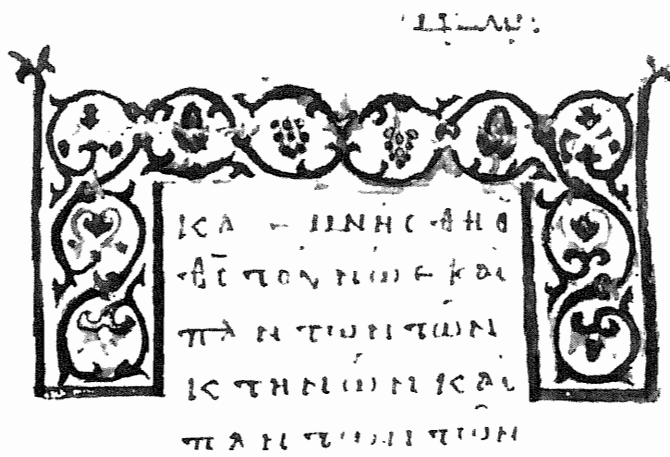 ΜΝΗCΘΗ Ο
ΘC ΤΟΥ ΝΩΕ ΚΑΙ
ΠΑΝΤΩΝ ΤΩΝ
ΚΤΗΝΩΝ ΚΑΙ
ΠΑΝΤΩΝ ΤΩΝ